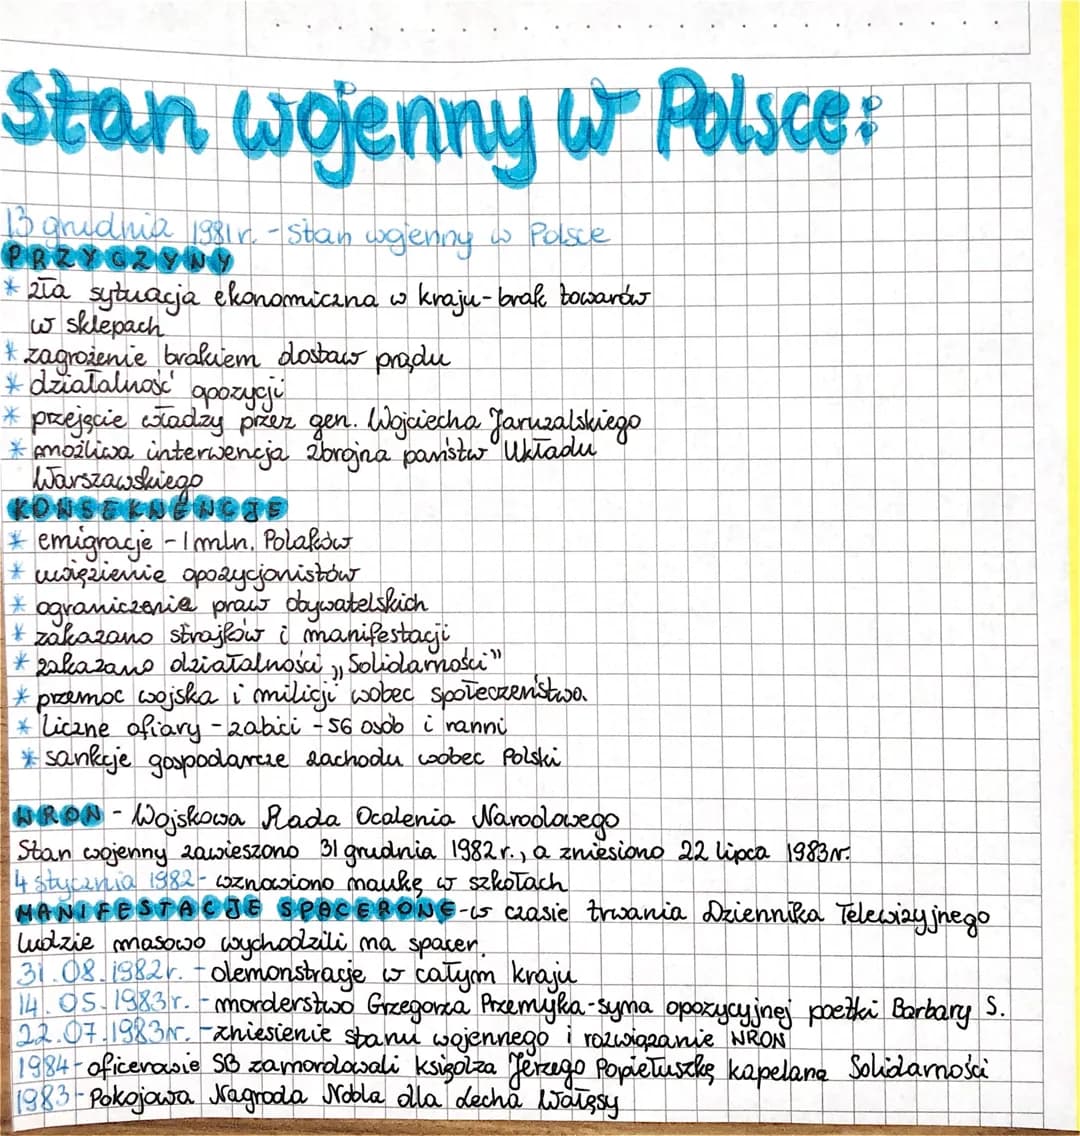 Stan wojenny w Polsce:
13 grudnia 1981r. - Stan wojenny w Polsce
PRZYCZYNY
* zła sytuacja ekonomiczna w kraju - brak towarów
w sklepach
* zagrożenie brakiem dostaw prądu
* działalność opozycji
* przejęcie władzy przez gen. Wojciecha Jaruzalskiego
* możliwa interwencja zbrojna państw Układu
Warszawskiego
KONSEKWENCJE
* emigracje - 1 mln. Polaków
* uwięzienie opozycjonistów
* ograniczenie praw obywatelskich
* zakazano strajków i manifestacji
* zakazano działalności „Solidarności”
* przemoc wojska i milicji wobec społeczeństwa
* liczne ofiary - zabici - 56 osób i ranni
* sankcje gospodarcze zachodu wobec Polski
WRON - Wojskowa Rada Ocalenia Narodowego
Stan wojenny zawieszono 31 grudnia 1982 r., a zniesiono 22 lipca 1983r.
4 stycznia 1982 - wznowiono naukę w szkołach
MANIFESTACJE SPACEROWE - w czasie trwania Dziennika Telewizyjnego
ludzie masowo wychodzili na spacer.
31.08.1982r. - demonstracje w całym kraju
14.05.1983r. - morderstwo Grzegorza Przemyka - syna opozycyjnej poetki Barbary S.
22.07.1983r. - zniesienie stanu wojennego i rozwiązanie WRON
1984 - oficerowie SB zamordowali księdza Jerzego Popiełuszkę kapelana Solidarności
1983 - Pokojowa Nagroda Nobla dla Lecha Wałęsy